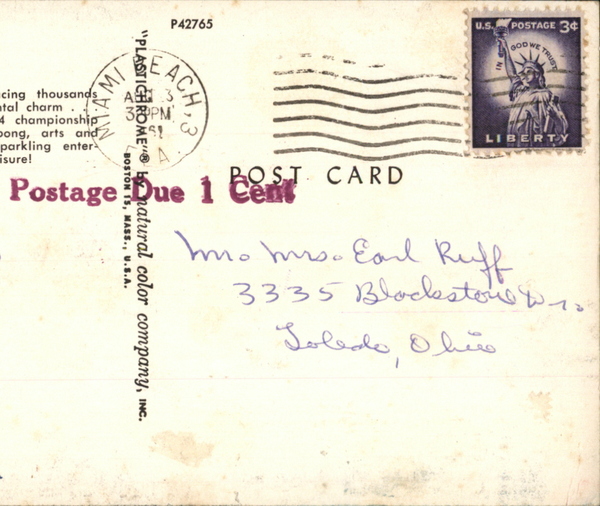 P42765
U.S. POSTAGE 3¢
IN GOD WE TRUST
LIBERTY
MIAMI BEACH,
3 PM
61
cing thousands
tal charm . .
4 championship
pong, arts and
parkling enter-
isure!
POST CARD
Postage Due 1 Cent
"PLASTICHROME"® by natural color company, INC.
BOSTON 15, MASS., U.S.A.
Mr. Mrs. Earl Ruff
3335 Blackstone Dr.
Toledo, Ohio